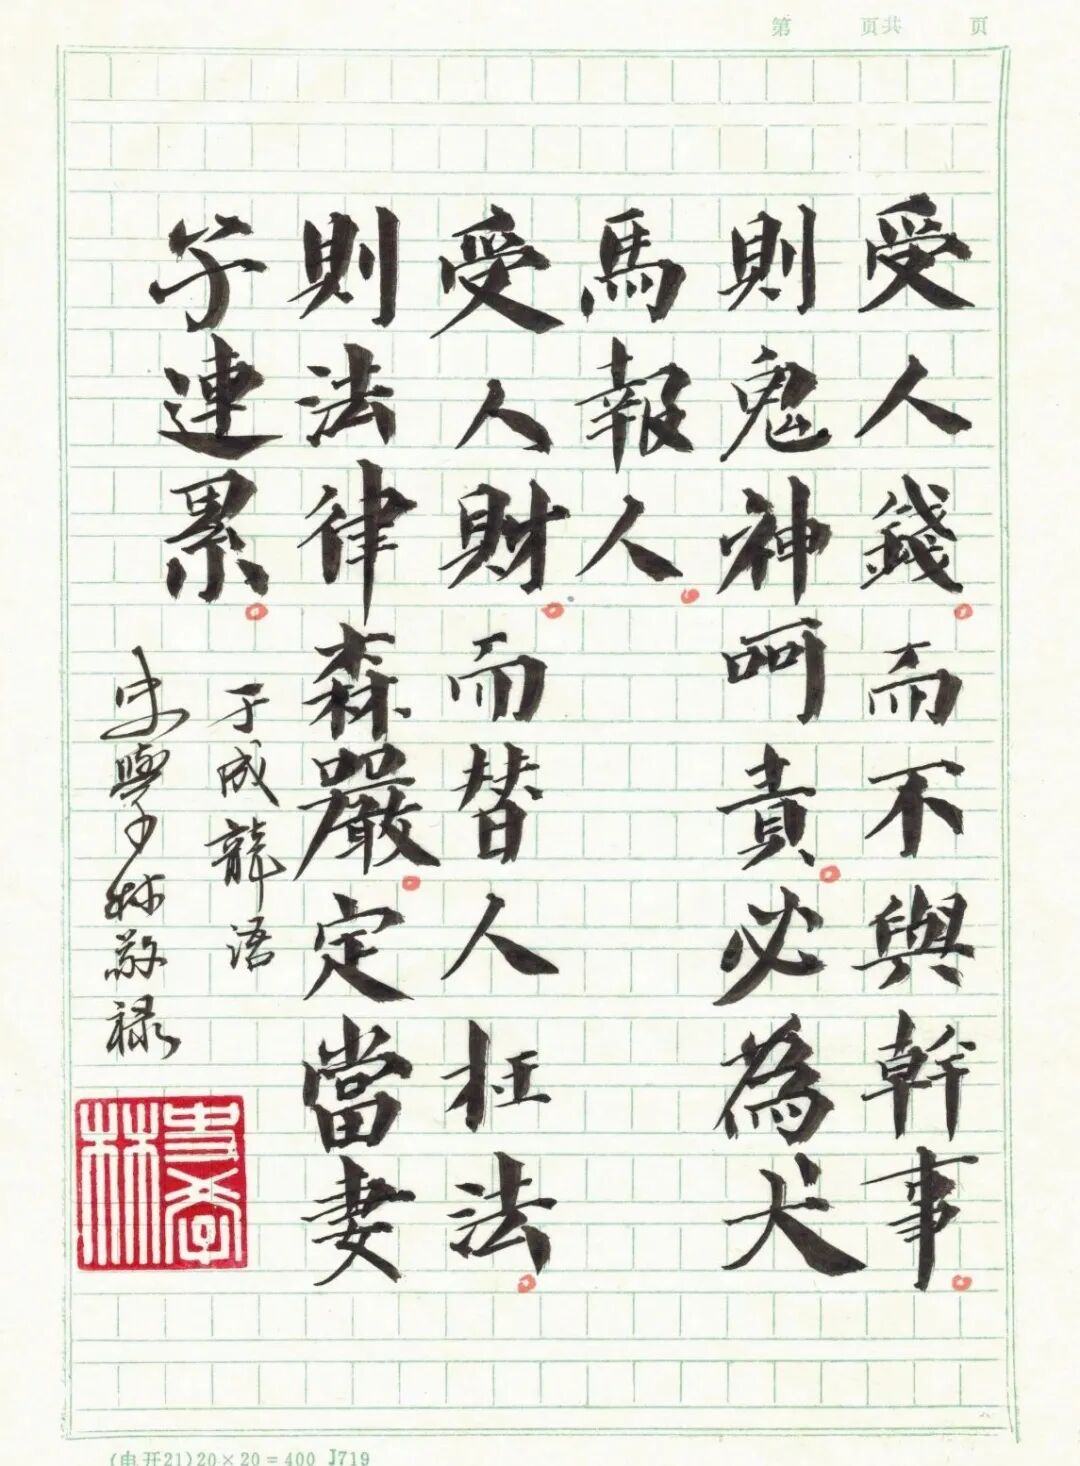 第 页共 页
受人錢而不與幹事
則鬼神呵責必為犬
馬報人
受人財而替人枉法
則法律森嚴定當妻
子連累
于成龍语
史學林敬禄
史學林
(电开21)20×20=400 J719